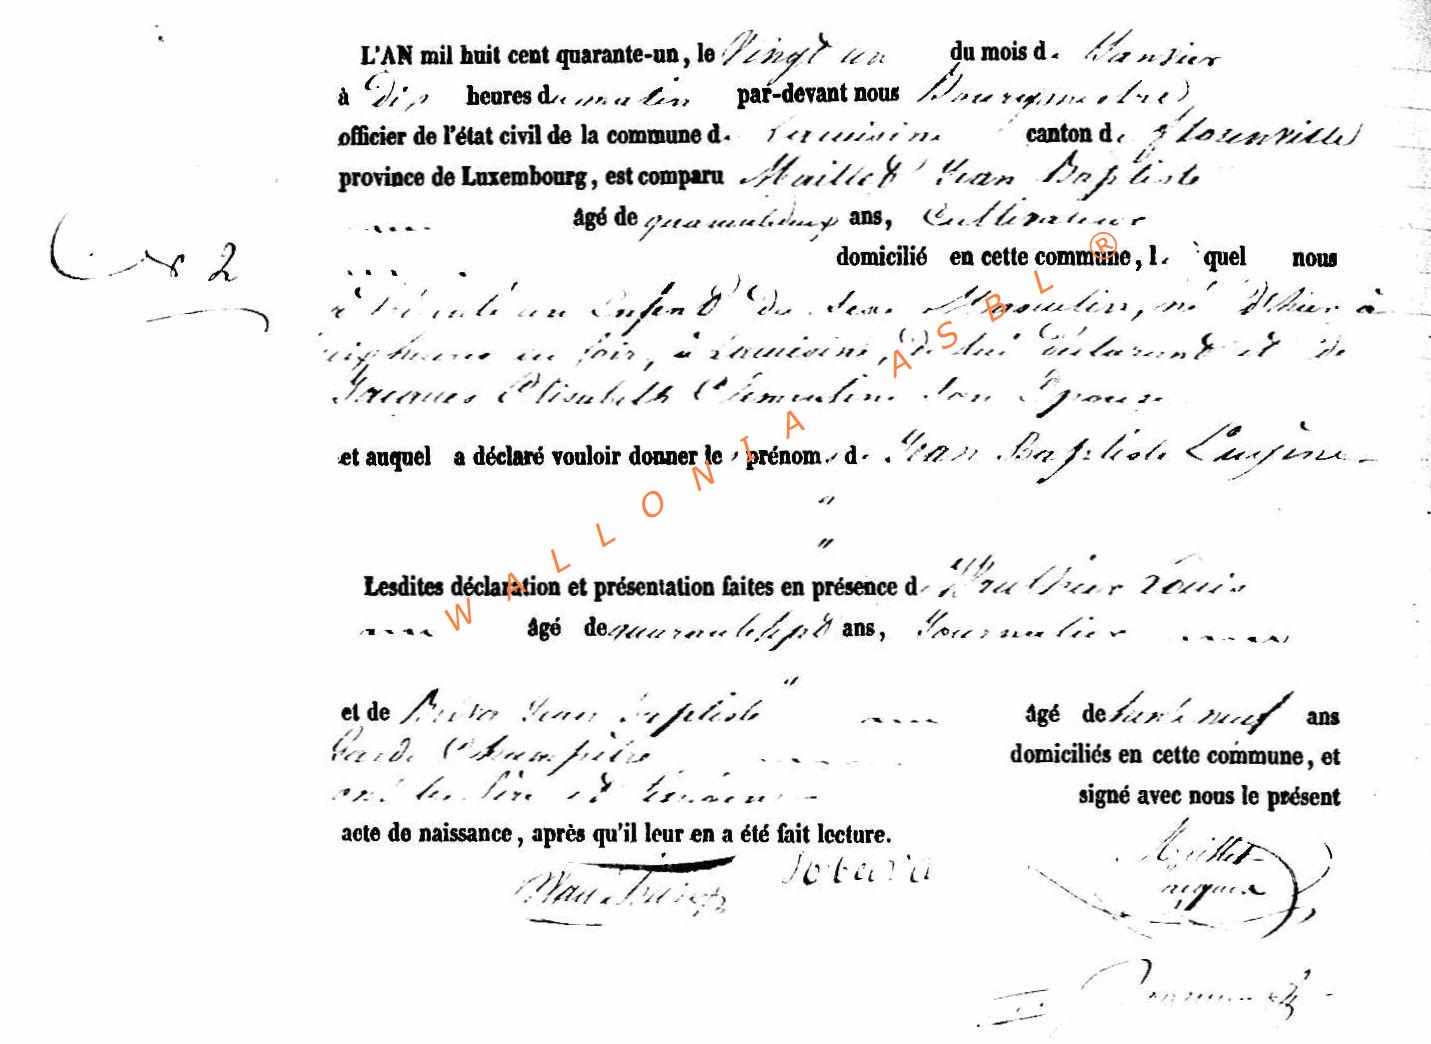 L'AN mil huit cent quarante-un, le Vingt un du mois de Janvier
à Dix heures du matin par-devant nous Bourgmestre
officier de l'état civil de la commune de canton de florenville
province de Luxembourg, est comparu Maillet Jean Baptiste
âgé de quarantedeux ans, Cultivateur
N 2
domicilié en cette commune, le quel nous
a présenté un Enfant du Sexe Masculin, né d'hier à
heures du soir, à de lui déclarant et de
Jacques Elisabeth Clementine Son Epouse
et auquel a déclaré vouloir donner les prénoms de Jean Baptiste Eugène
"
"
Lesdites déclaration et présentation faites en présence de Wauthier Louis
âgé de quarante sept ans, Journalier
"
et de Jean baptiste âgé de trente neuf ans
Garde Champêtre domiciliés en cette commune, et
ont les Père et témoins signé avec nous le présent
acte de naissance, après qu'il leur en a été fait lecture.
Maillet
Jacques
WALLONIA ASBL ®